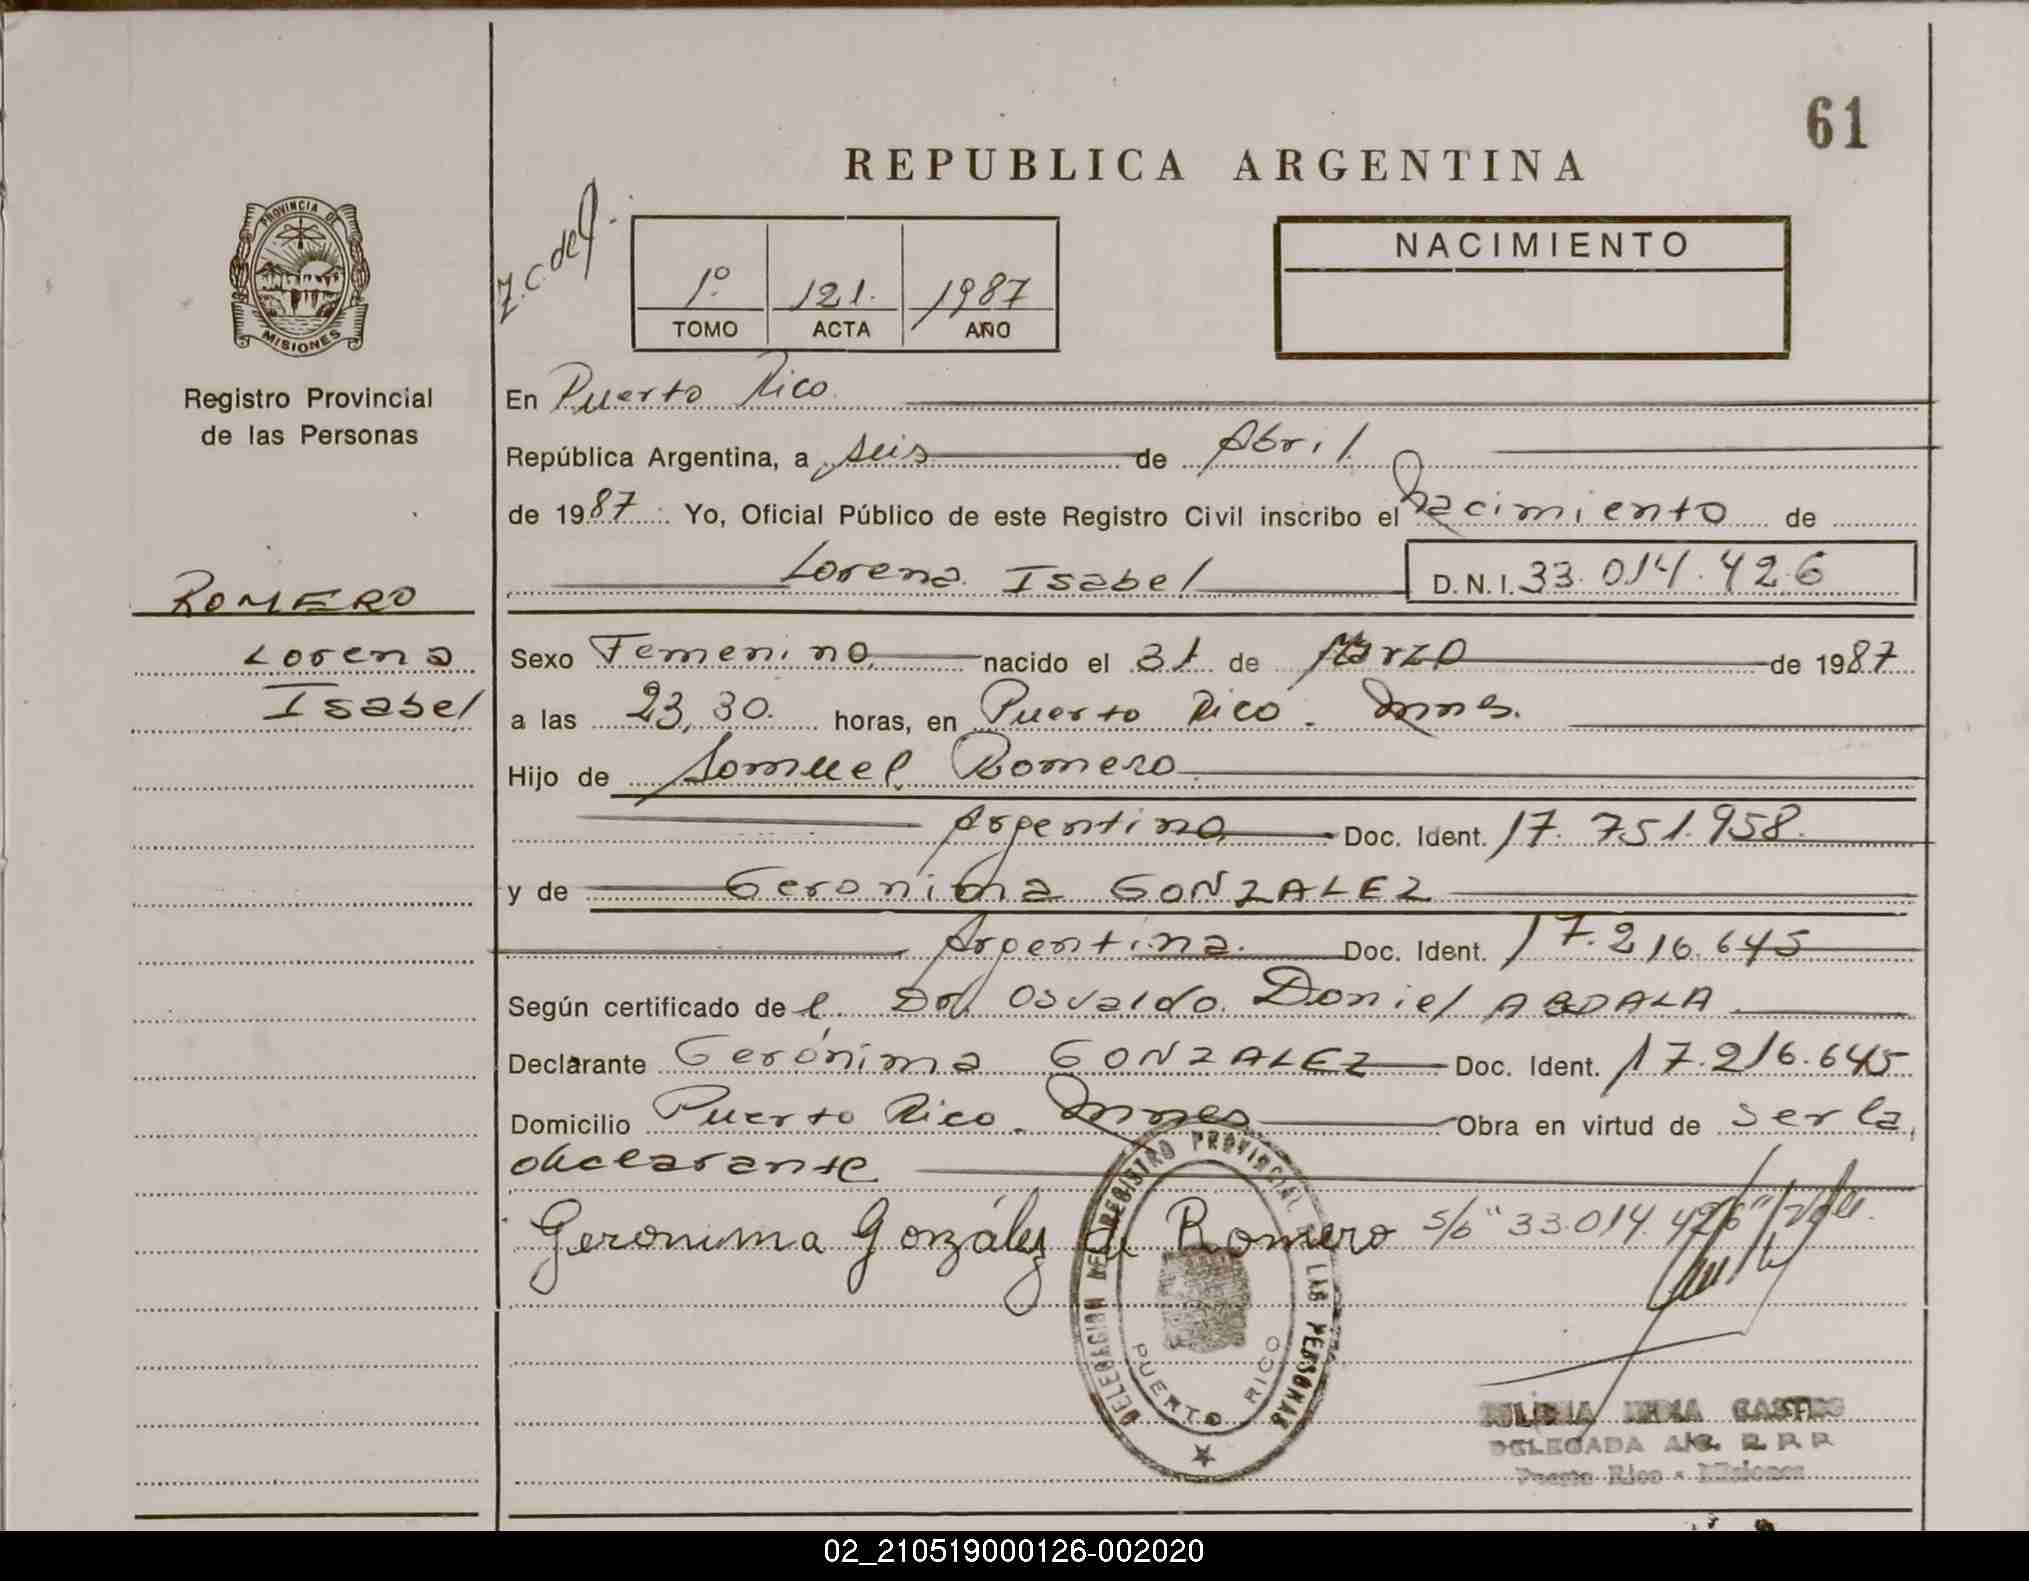 61
REPUBLICA ARGENTINA
PROVINCIA DE
MISIONES
Registro Provincial
de las Personas
1º 121. 1987
TOMO ACTA AÑO
NACIMIENTO
En Puerto Rico
República Argentina, a seis de Abril
de 1987. Yo, Oficial Público de este Registro Civil inscribo el Nacimiento de
Lorena Isabel D.N.I. 33.014.426
ROMERO
Lorena
Isabel
Sexo Femenino nacido el 31 de Marzo de 1987
a las 23,30. horas, en Puerto Rico. Mnes.
Hijo de Samuel Romero
Argentino Doc. Ident. 17.751.958.
y de Geronima GONZALEZ
Argentina. Doc. Ident. 17.216.645
Según certificado de l Dr. Osvaldo Daniel ABDALA
Declarante Gerónima GONZALEZ Doc. Ident. 17.216.645
Domicilio Puerto Rico. Mnes Obra en virtud de ser la
declarante
Geronima González de Romero s/b "33.014.426" Vale.
DELEGACION DEL REGISTRO PROVINCIAL DE LAS PERSONAS
PUERTO RICO
CASTRO
DELEGADA A/C. R. P. P.
Puerto Rico - Misiones
02_210519000126-002020